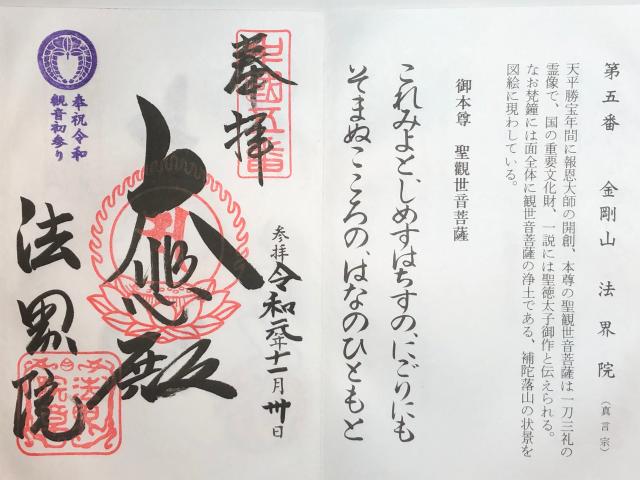 第五番　金剛山　法界院（真言宗）
天平勝宝年間に報恩大師の開創、本尊の聖観世音菩薩は一刀三礼の
霊像で、国の重要文化財、一説には聖徳太子御作と伝えられる。
なお梵鐘には面全体に観世音菩薩の浄土である、補陀落山の状景を
図絵に現わしている。
御本尊　聖觀世音菩薩
これみよと、じめすはちすの、にごりにも
そまぬこころの、はなのひともと
奉拝
参拝令和元年十一月卅日
大悲殿
法界院
奉祝令和
観音初参り